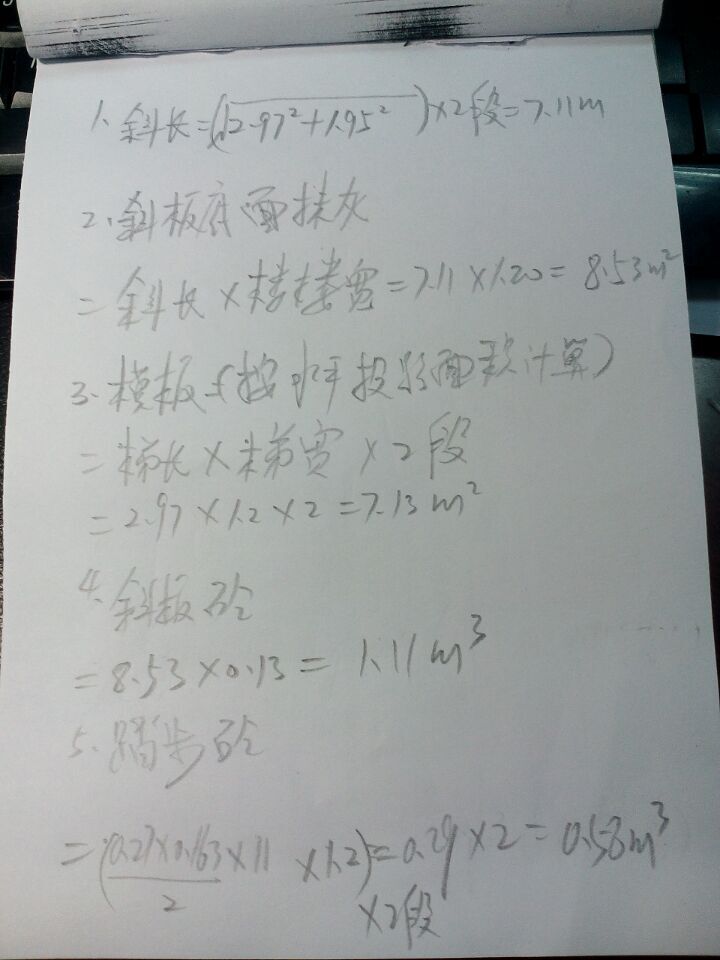 1. 斜长=(√2.97²+1.95²)×2段=7.11m
2. 斜板底面抹灰
=斜长×楼梯宽=7.11×1.20=8.53m²
3. 模板(按水平投影面积计算)
=梯长×梯宽×2段
=2.97×1.2×2=7.13m²
4. 斜板砼
=8.53×0.13=1.11m³
5. 踏步砼
=(0.27×0.163/2×11×1.2)=0.29×2=0.58m³
×2段